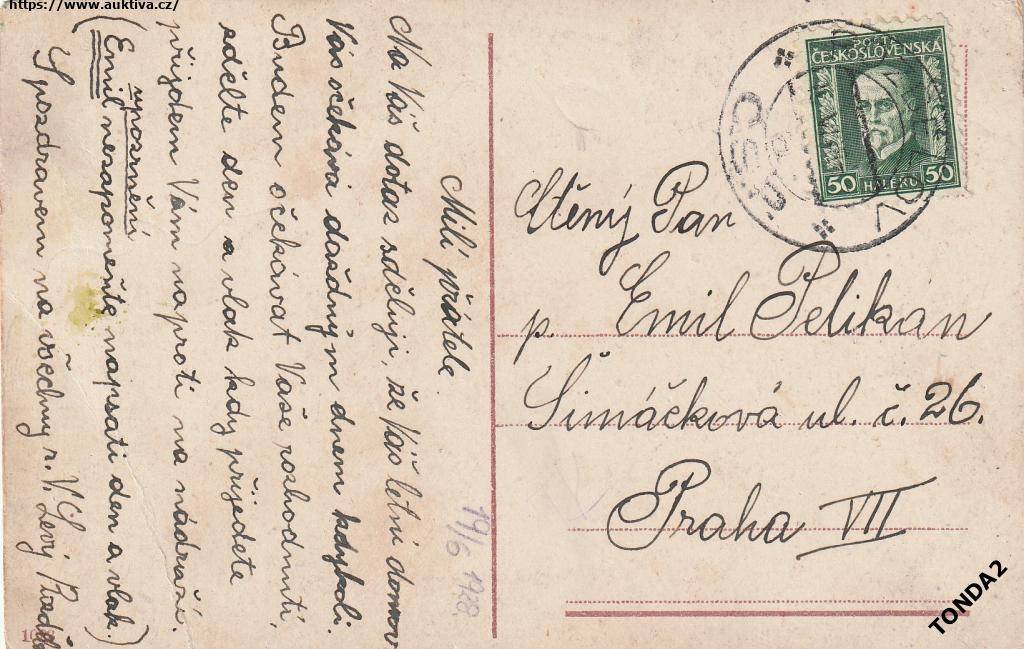 https://www.auktiva.cz/
Milí přátele.
Na Váš dotaz sděluji, že Váš letní domov
Vás očekává dašným dnem kdykoli.
Budem očekávat Vaše rozhodnutí,
sdělte den a vlak kdy přijedete
přijdem Vám naproti na nádraží.
upozornění
(Emil nezapomeňte napsati den a vlak.)
S pozdravem na všechny r. V. Levý
POŠTA
ČESKOSLOVENSKÁ
50 HALÉŘŮ 50
Ctěný Pan
p. Emil Pelikán
Šimáčková ul. č. 26.
Praha VII
19/6 1928
TONDA2